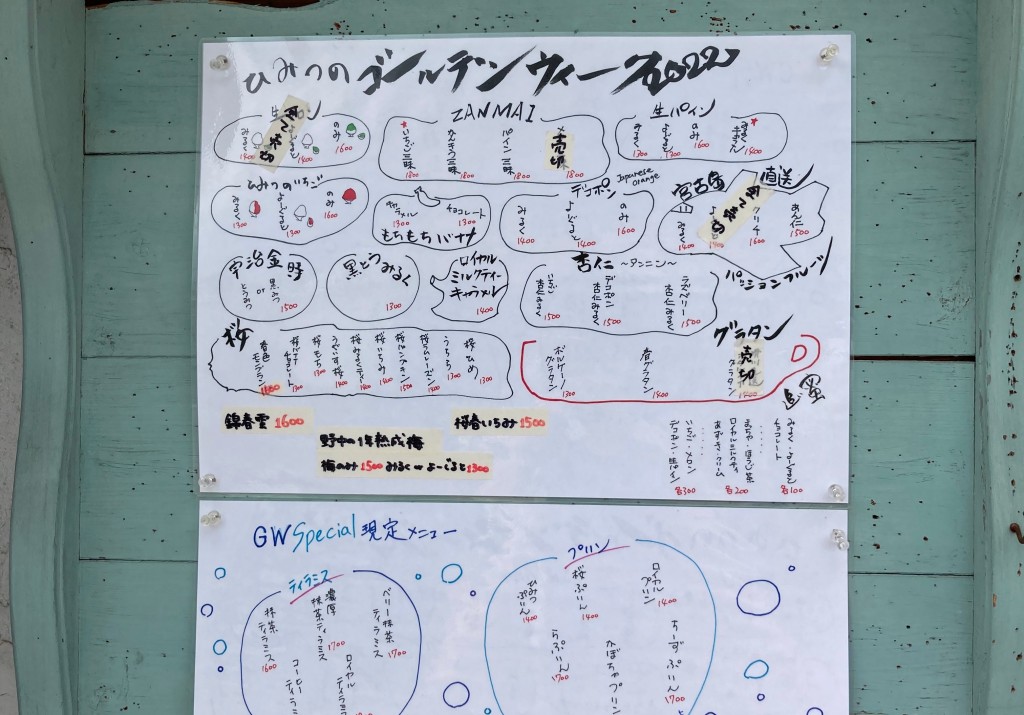 ひみつのゴールデンウィーク2022
みるく 1400
よーぐると 1400
のみ 1600
ZANMAI
いちご三昧 1800
かんきつ三昧 1800
パイン三昧 1800
売切 1800
生パイン
みるく 1300
よーぐると 1300
のみ 1600
ひみつのいちご
みるく 1300
よーぐると 1300
のみ 1600
キャラメル 1300
チョコレート 1300
もちもちバナナ
デコポン Japanese orange
みるく 1400
よーぐると 1400
のみ 1600
宮古島 直送
みるく 1400
1400
1600
あん仁 1500
パッションフルーツ
宇治金時
黒みつ or とうみつ 1500
黒とうみるく
1300
ロイヤル
ミルクティー
キャラメル
1400
杏仁 ~タンニン~
いちご 杏仁みるく 1500
デコポン 杏仁みるく 1500
ラズベリー 杏仁みるく 1500
桜
春色モンブラン
桜バナナチョコレート 1300
桜もち 1300
うぐいす桜 1400
桜みるくティー 1400
桜いちみ 1400
桜パンプキン 1500
桜ラムレーズン 1400
うちろ 1300
桜ひめ 1300
グラタン
ボルケーノグラタン 1300
春グラタン 1400
売切 グラタン 1400
錦春雲 1600
桜春いちみ 1500
野中の1年熟成梅
梅のみ 1500 みるく or よーぐると 1300
追蜜
みるく・よーぐると
チョコレート 各100
まちゃ・ほうじ茶
ロイヤルミルクティ
あずき・クリーム 各200
いちご・メロン
デコポン・生パイン 各300
GW Special 現定メニュー
ティラミス
抹茶ティラミス 1600
濃厚抹茶ティラミス 1700
ベリー抹茶ティラミス 1700
コーヒーティラミ
ロイヤルティラミ
プリン
ひみつぷりん 1400
桜ぷりん 1400
ロイヤルプリン 1400
らぷりん 1700
かぼちゃプリン
ちーずぷりん 1700